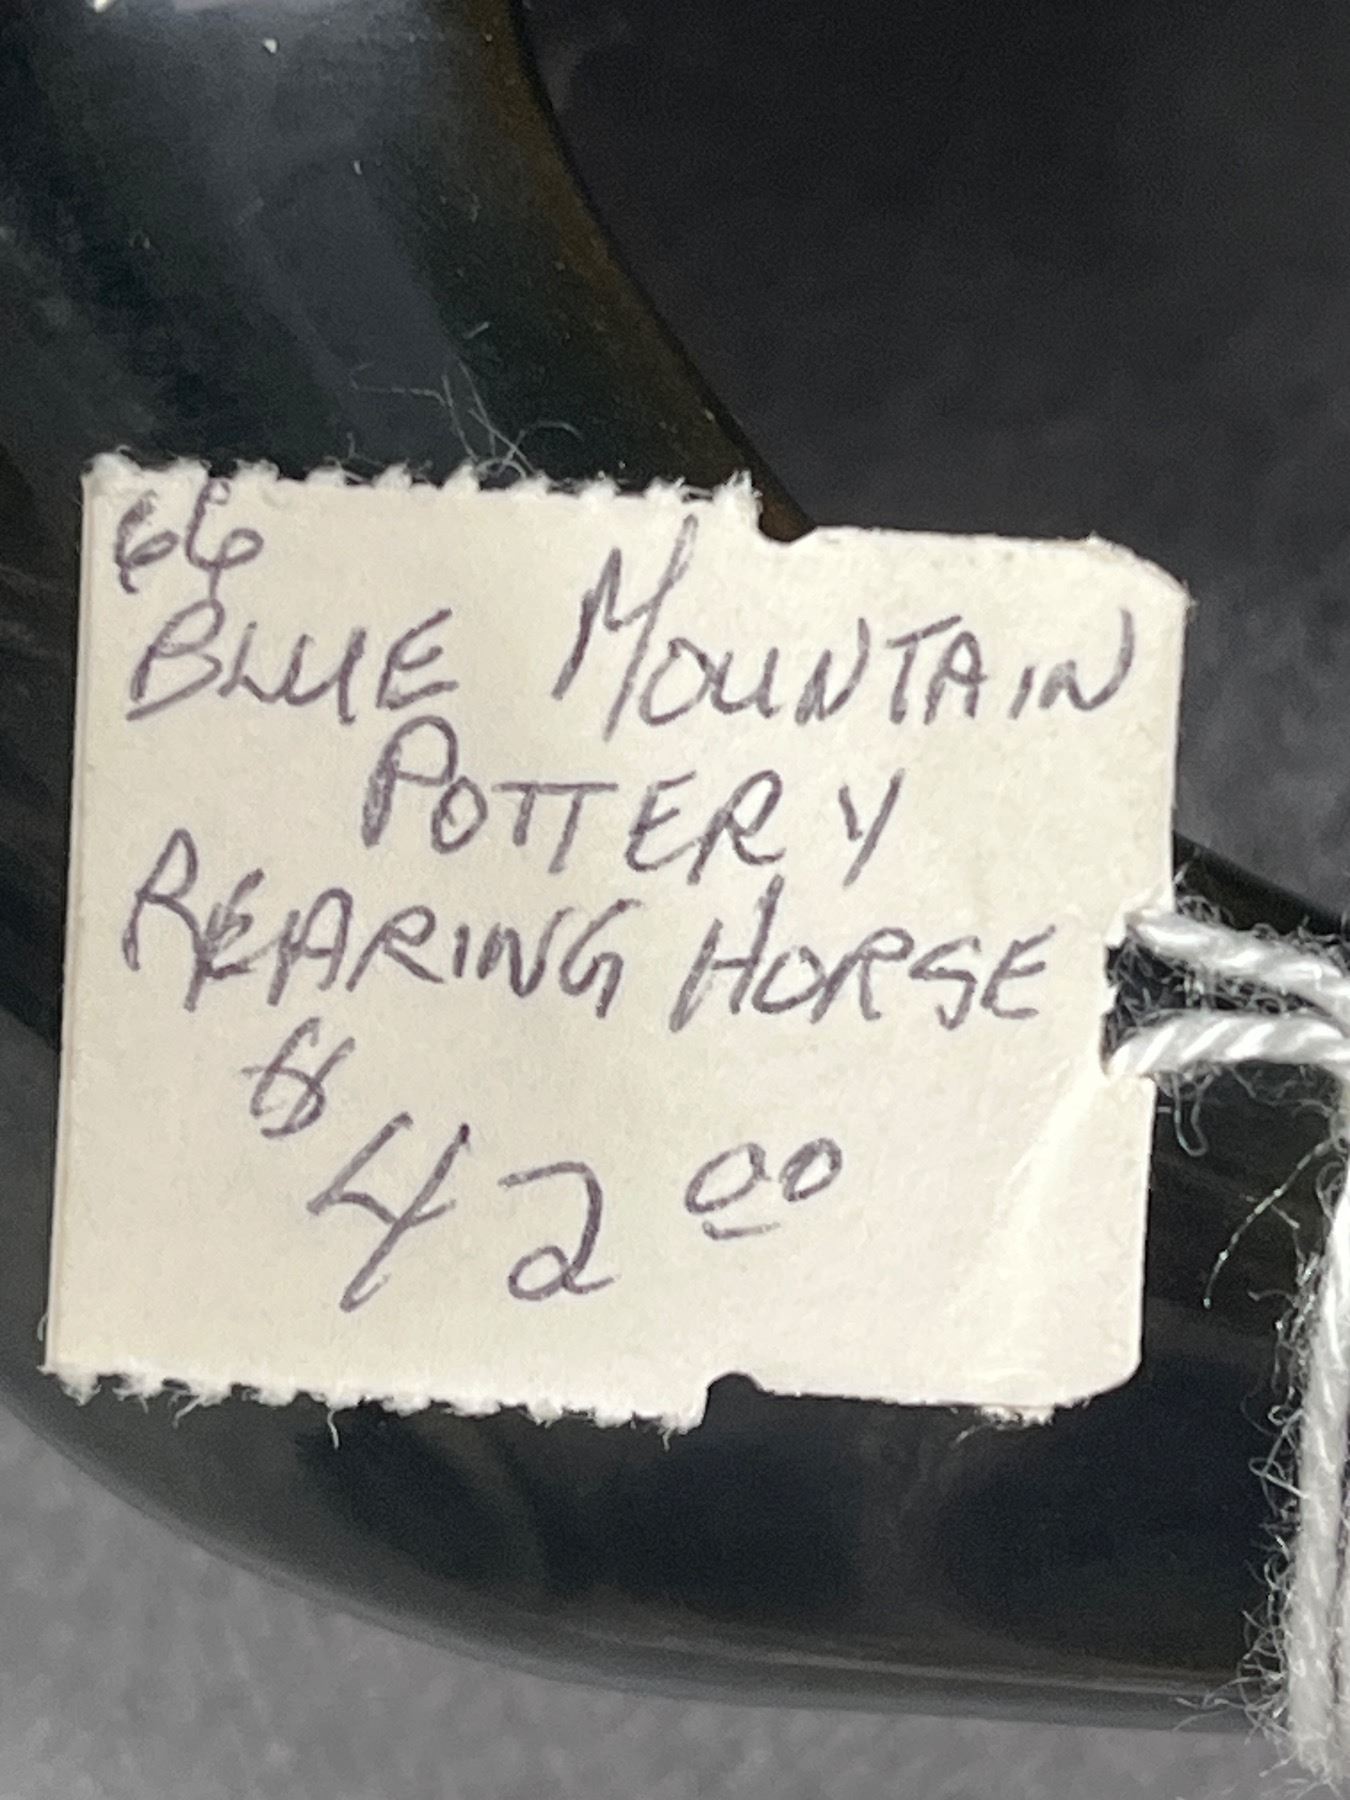 66
BLUE MOUNTAIN
POTTERY
REARING HORSE
$42.00